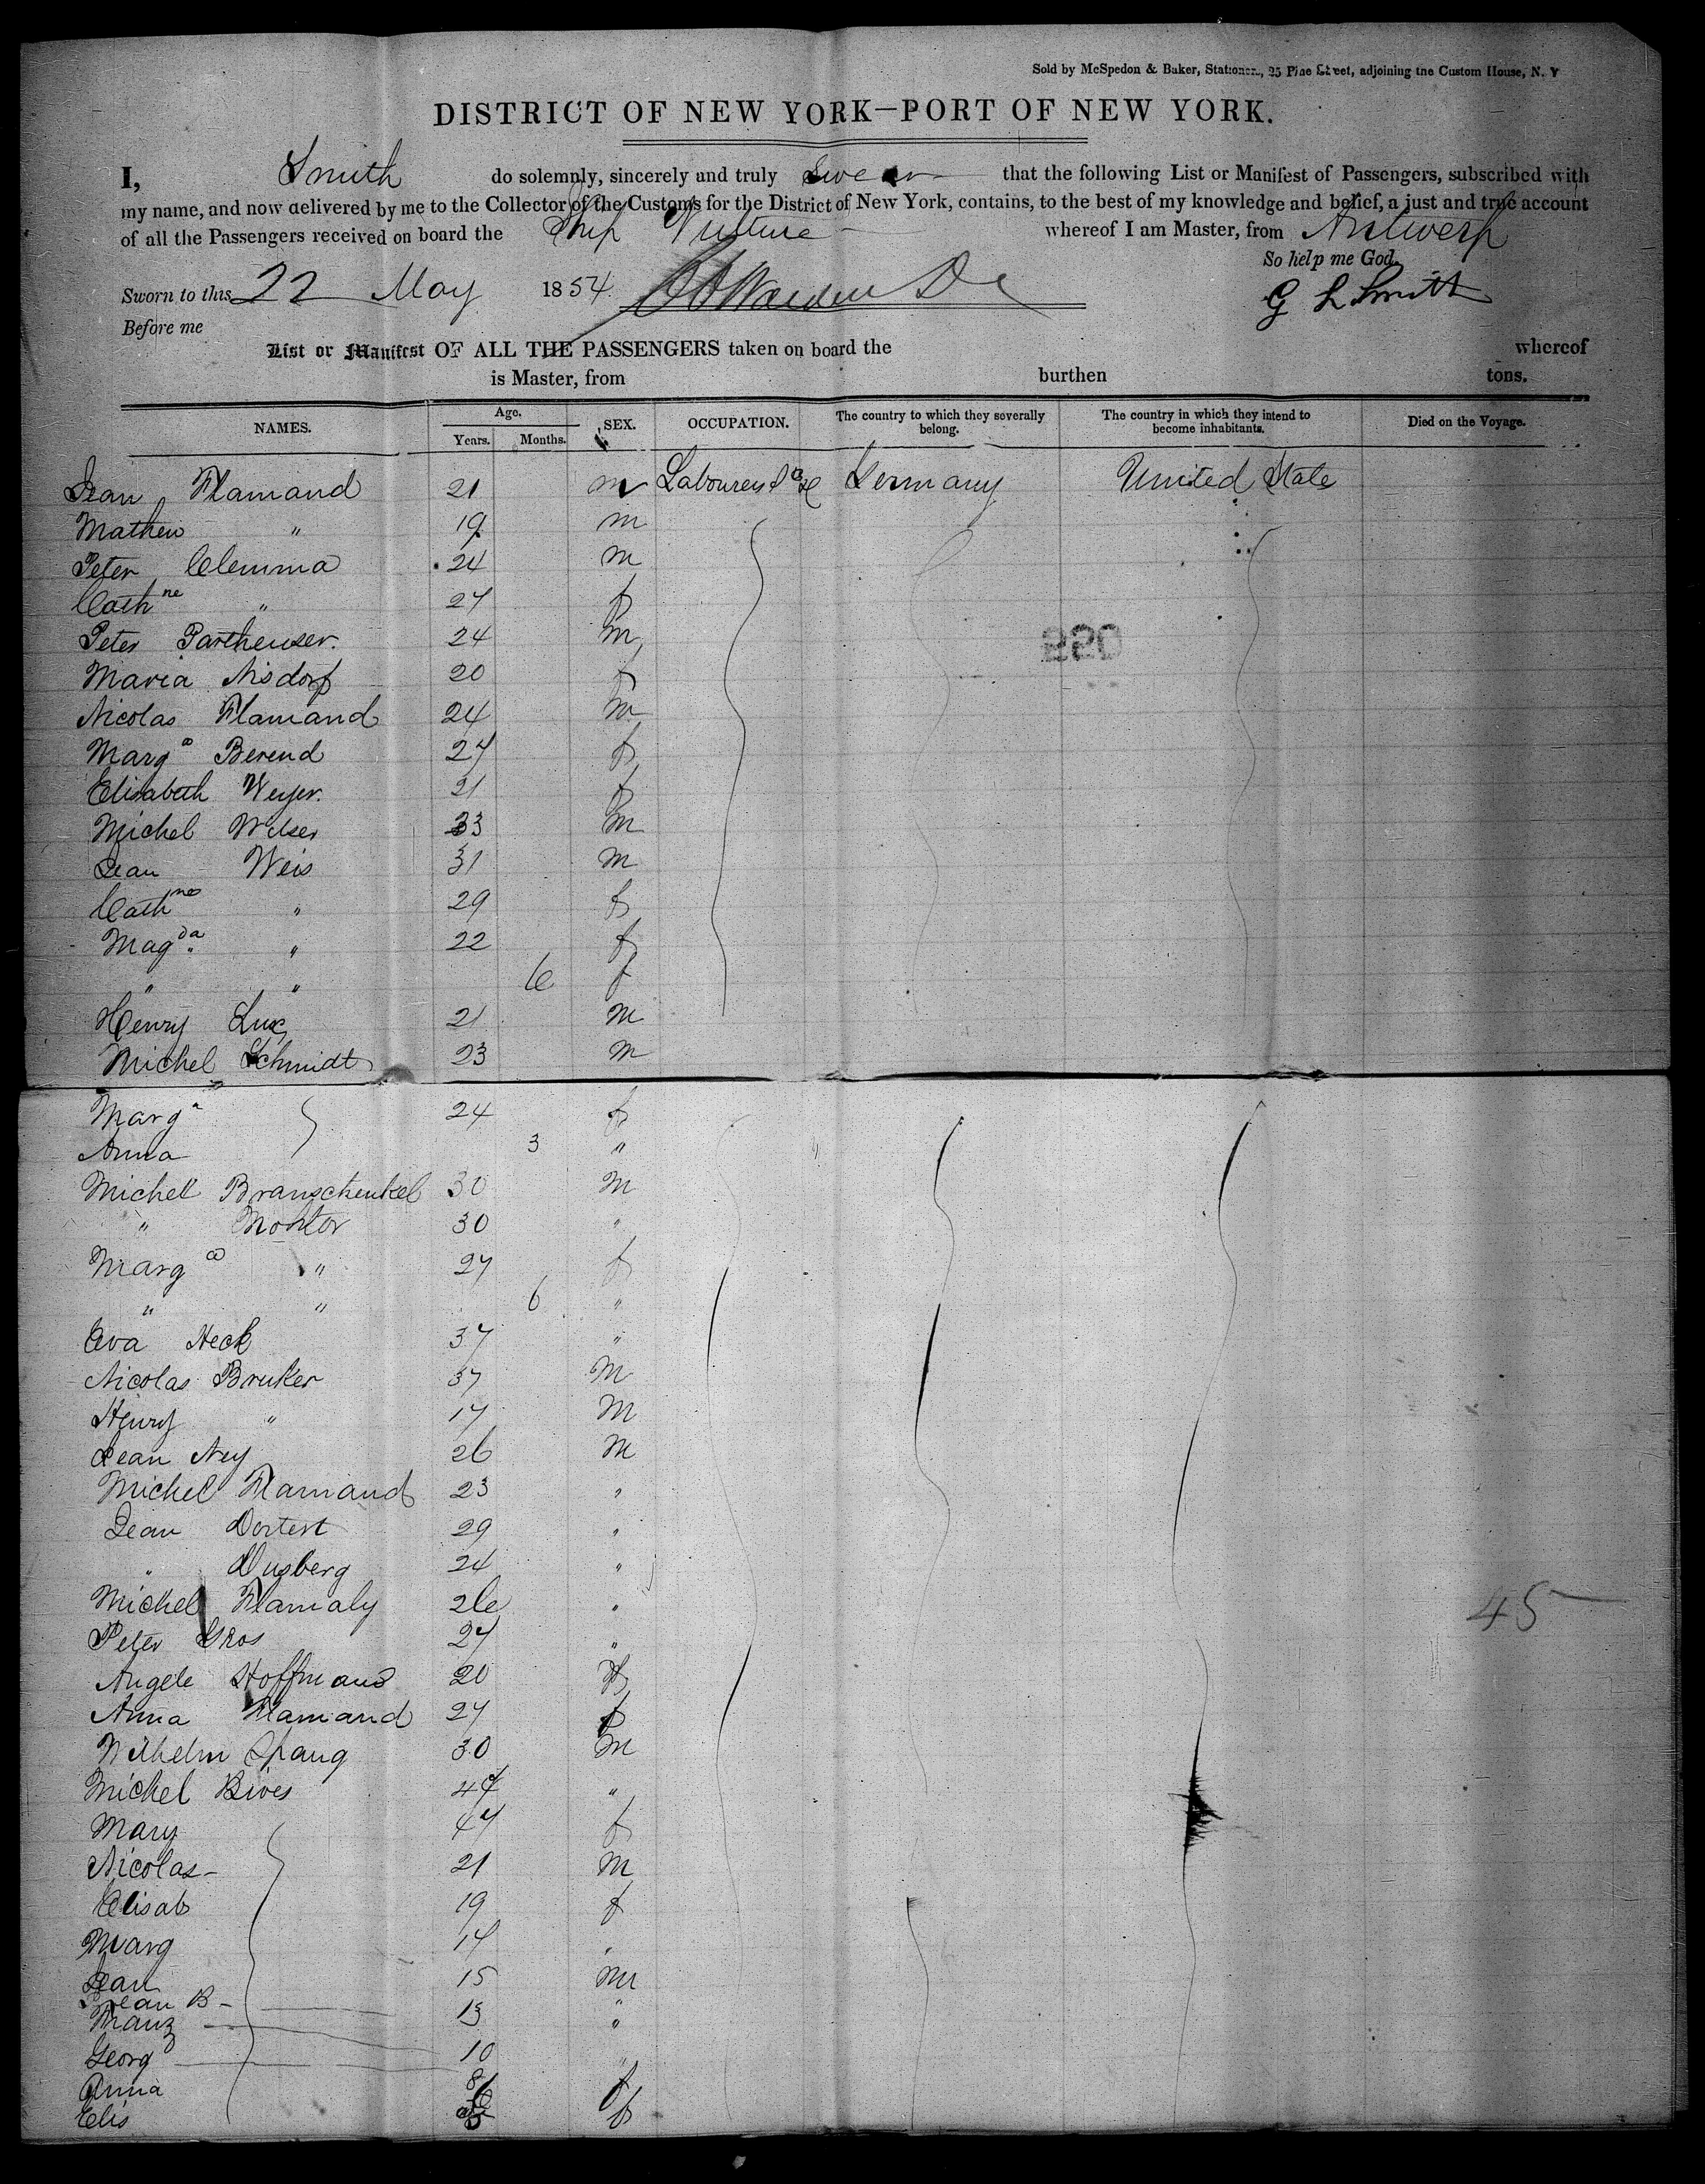 Sold by McSpedon & Baker, Stationers, 25 Pine Street, adjoining the Custom House, N. Y
DISTRICT OF NEW YORK—PORT OF NEW YORK.
I, Smith do solemnly, sincerely and truly Swear that the following List or Manifest of Passengers, subscribed with
my name, and now delivered by me to the Collector of the Customs for the District of New York, contains, to the best of my knowledge and belief, a just and true account
of all the Passengers received on board the Ship Vulture whereof I am Master, from Antwerp
So help me God.
Sworn to this 22 May 1854 G L Smith
Before me
List or Manifest OF ALL THE PASSENGERS taken on board the whereof
is Master, from burthen tons.
NAMES. Age. Years. Months. SEX. OCCUPATION. The country to which they severally belong. The country in which they intend to become inhabitants. Died on the Voyage.
Jean Flamand 21 m Labourers &c Germany United State
Mathew " 19 m
Peter Clemma 24 m
Cathne " 27 f
Peter Partheuser. 24 m
Maria Nisdorf 20 f
Nicolas Flamand 24 m
Marga Berend 27 f
Elisabeth Weyer. 21 f
Michel Welser 33 m
Jean Weis 31 m
Cathne " 29 f
Magda " 22 f
" " 6 f
Henry Lux 21 m
Michel Schmidt 23 m
Marga 24 f
Anna 3 "
Michell Branschenkel 30 m
" Montor 30 "
Marga " 27 f
" " 6 "
Eva Heck 37 "
Nicolas Bruker 37 M
Henry " 17 M
Jean Ney 26 M
Michel Flamand 23 "
Jean Dortert 29 "
" Dusberg 24 "
Michel Flamaly 26 "
45
Peter Gros 27 "
Angele Hoffmans 20 f
Anna Flamand 27 f
Wilhelm Spang 30 m
Michel Bives 47 "
Mary 47 f
Nicolas 21 M
Elisab 19 f
Marg 17 "
Jean 15 m
Jean B
Franz 13 "
Georg 10 "
Anna 8 f
Elis f